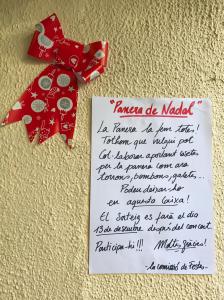 "Panera de Nadal"
La Panera la fem totes!
Tothom que vulgui pot
Col·laborar aportant cosetes
per la panera com ara
torrons, bombons, galetes...
Podeu deixar-ho
en aquesta Caixa!
El Sorteig es farà el dia
13 de desembre després del concert
Participa-hi!!! Moltes gràcies!
la comissió de Festes